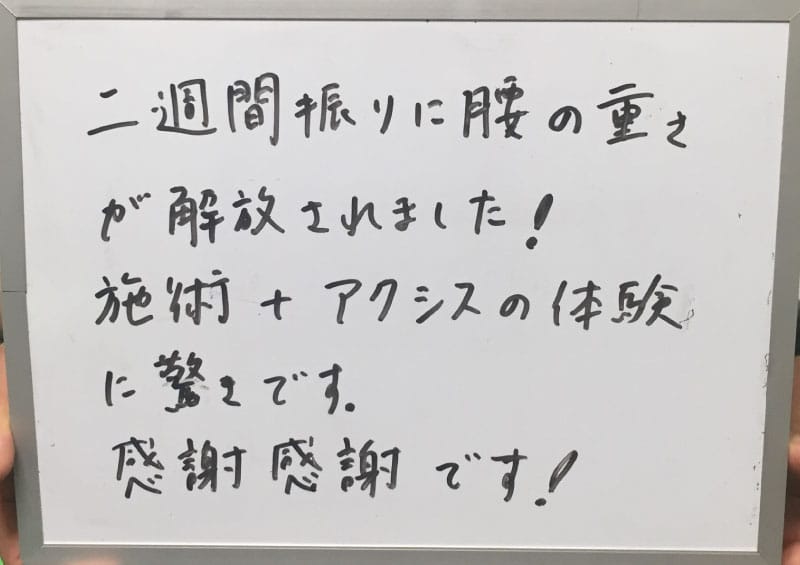 二週間振りに腰の重さ
が解放されました!
施術+アクシスの体験
に驚きです。
感謝感謝です!